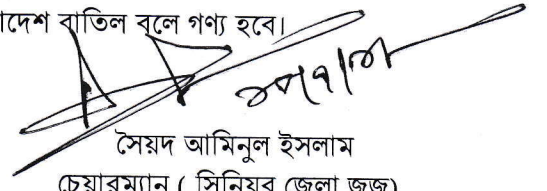 াদেশ বাতিল বলে গণ্য হবে।
সৈয়দ আমিনুল ইসলাম
চেয়ারম্যান ( সিনিয়র জেলা জজ)